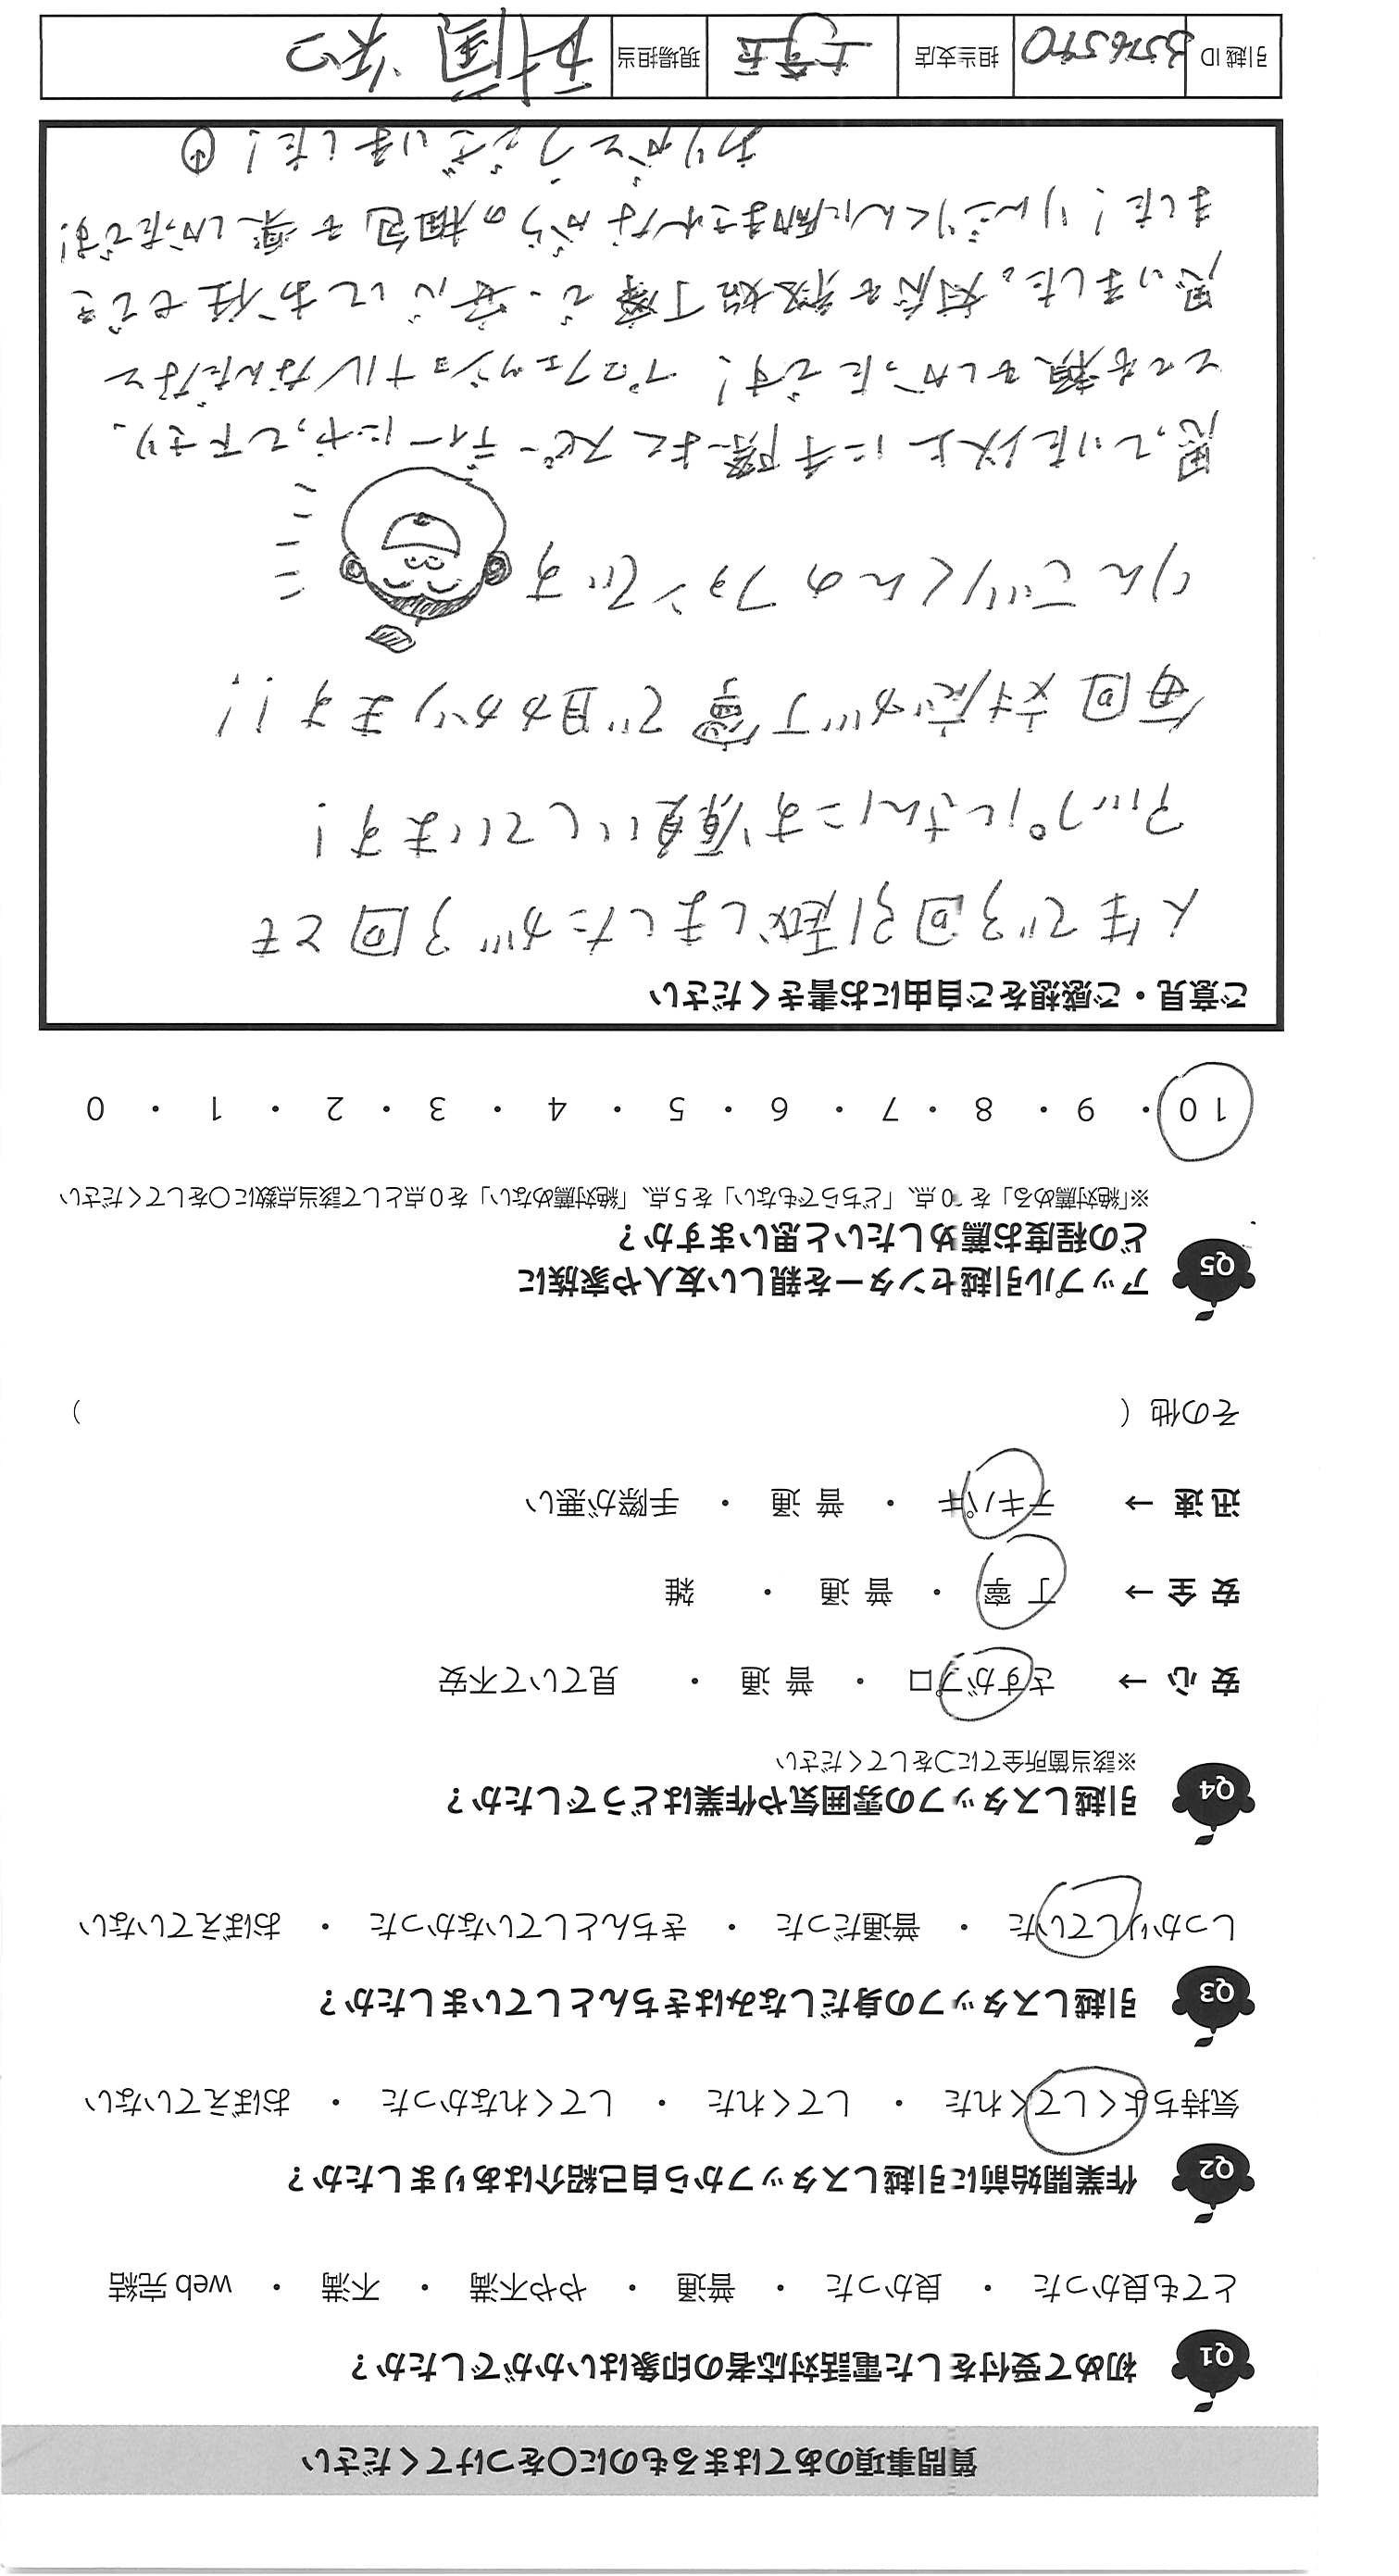 質問事項のあてはまるものに○をつけてください
Q1 初めて受付をした電話対応者の印象はいかがでしたか？
とても良かった ・ 良かった ・ 普通 ・ やや不満 ・ 不満 ・ web 完結
Q2 作業開始前に引越しスタッフから自己紹介はありましたか？
気持ちよくしてくれた ・ してくれた ・ してくれなかった ・ おぼえていない
Q3 引越しスタッフの身だしなみはきちんとしていましたか？
しっかりしていた ・ 普通だった ・ きちんとしていなかった ・ おぼえていない
Q4 引越しスタッフの雰囲気や作業はどうでしたか？
※該当箇所全てに○をしてください
安 心 → さすがプロ ・ 普 通 ・ 見ていて不安
安 全 → 丁 寧 ・ 普 通 ・ 雑
迅 速 → テキパキ ・ 普 通 ・ 手際が悪い
その他（ ）
Q5 アップル引越センターを親しい友人や家族に
どの程度お薦めしたいと思いますか？
※「絶対薦める」を 0点、「どちらでもない」を５点、「絶対薦めない」を０点として該当点数に○をしてください
10 ・ 9 ・ 8 ・ 7 ・ 6 ・ 5 ・ 4 ・ 3 ・ 2 ・ 1 ・ 0
ご意見・ご感想をご自由にお書きください
人生で3回引越しましたが3回とも
アップルさんにお願いしています！
毎回対応が丁寧で助かります！！
りんごりくんのファンです
思っていた以上に手際よくスピーディーにやって下さり、
とても頼もしかったです！プロフェッショナルなんだなと
思いました。対応も終始丁寧で、安心してお任せでき
ました！りんごりくんに励まされながらの梱包も楽しかったです！
ありがとうございました！
引越 ID 3576590 担当支店 現場担当